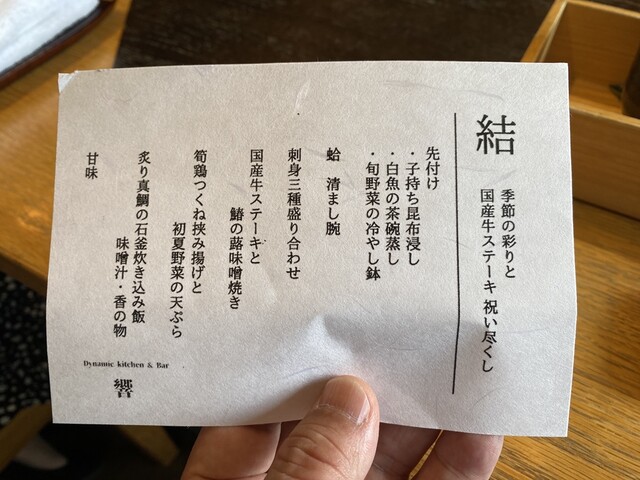 結
季節の彩りと
国産牛ステーキ 祝い尽くし
先付け
・子持ち昆布浸し
・白魚の茶碗蒸し
・旬野菜の冷やし鉢
蛤 清まし腕
刺身三種盛り合わせ
国産牛ステーキと
鰆の蕗味噌焼き
筍鶏つくね挟み揚げと
初夏野菜の天ぷら
炙り真鯛の石釜炊き込み飯
味噌汁・香の物
甘味
Dynamic kitchen & Bar
響